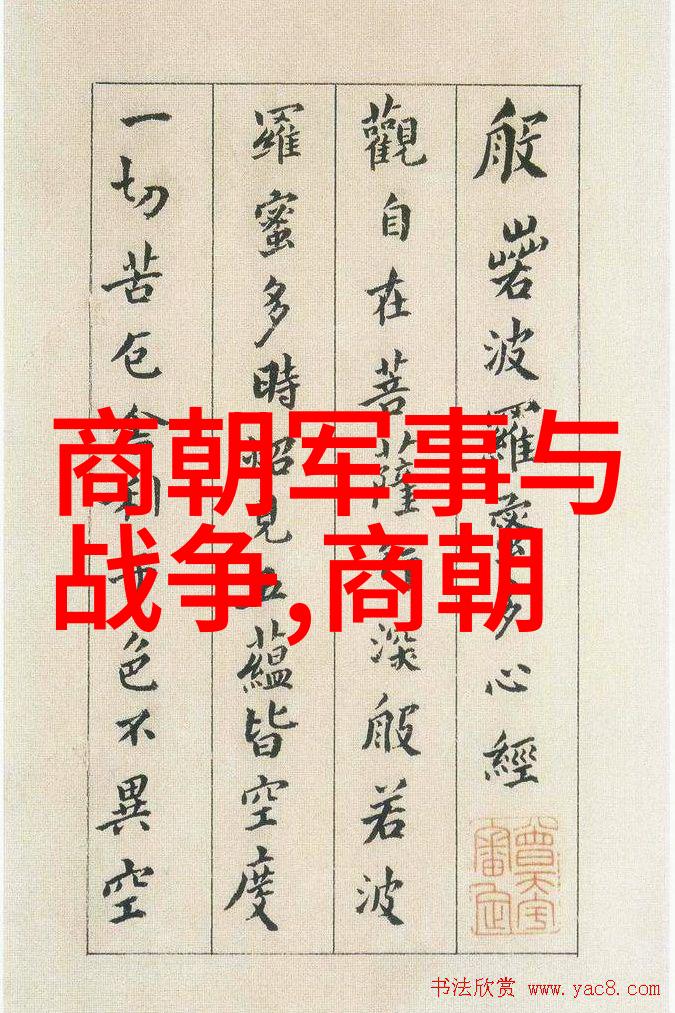 般若波羅蜜多心經
觀自在菩薩行深般若波
羅蜜多時照見五蘊皆空度
一切苦厄舍利子色不異空
商朝军事与
战争,商朝
书法欣赏 www.yac8.com